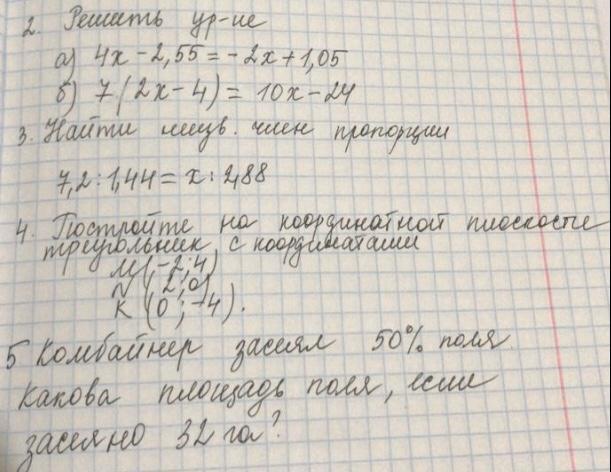 2. Решить ур-ие
а) 4x - 2,55 = -2x + 1,05
б) 7(2x - 4) = 10x - 24
3. Найти неизв. член пропорции
7,2 : 1,44 = x : 2,88
4. Постройте на координатной плоскости
треугольник с координатами
M (-2; 4)
N (2; 0)
K (0; -4).
5 Комбайнер засеял 50% поля
Какова площадь поля, если
засеяно 32 га?